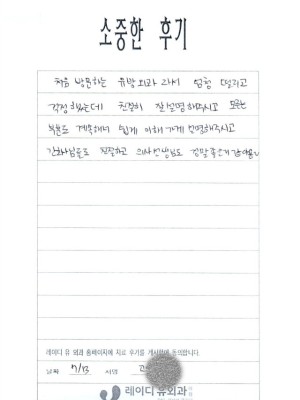 소중한 후기
처음 방문하는 유방외과라서 엄청 떨리고
걱정했는데 친절히 잘 설명해주시고 모르는
부분도 계속해서 쉽게 이해가게 설명해주시고
간호사님들도 친절하고 의사선생님도 정말 좋으신
레이디 유 외과 홈페이지에 치료 후기를 게시함에 동의합니다.
날짜 7/13 서명
레이디 유외과